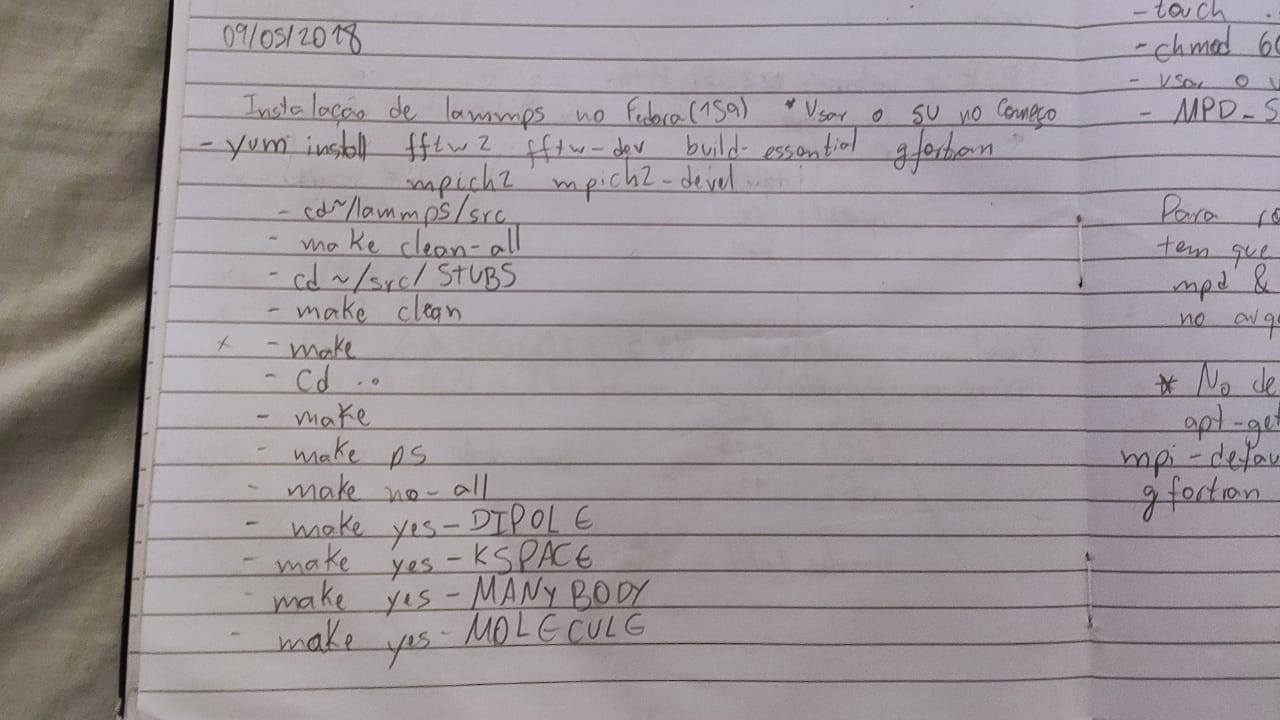 09/05/2018
Instalação de lammps no Fedora (159) * Usar o SU no Começo
- yum install fftw2 fftw-dev build-essential gfortran
mpich2 mpich2-devel
- cd ~/lammps/src
- make clean-all
- cd ~/src/STUBS
- make clean
x - make
- Cd ..
- make
- make ps
- make no-all
- make yes-DIPOLE
- make yes-KSPACE
- make yes-MANYBODY
- make yes-MOLECULE
- touch .
- chmod 60
- usar o
- MPD_S
Para
tem que
mpd &
no
* No de
apt-get
mpi-defau
gfortran